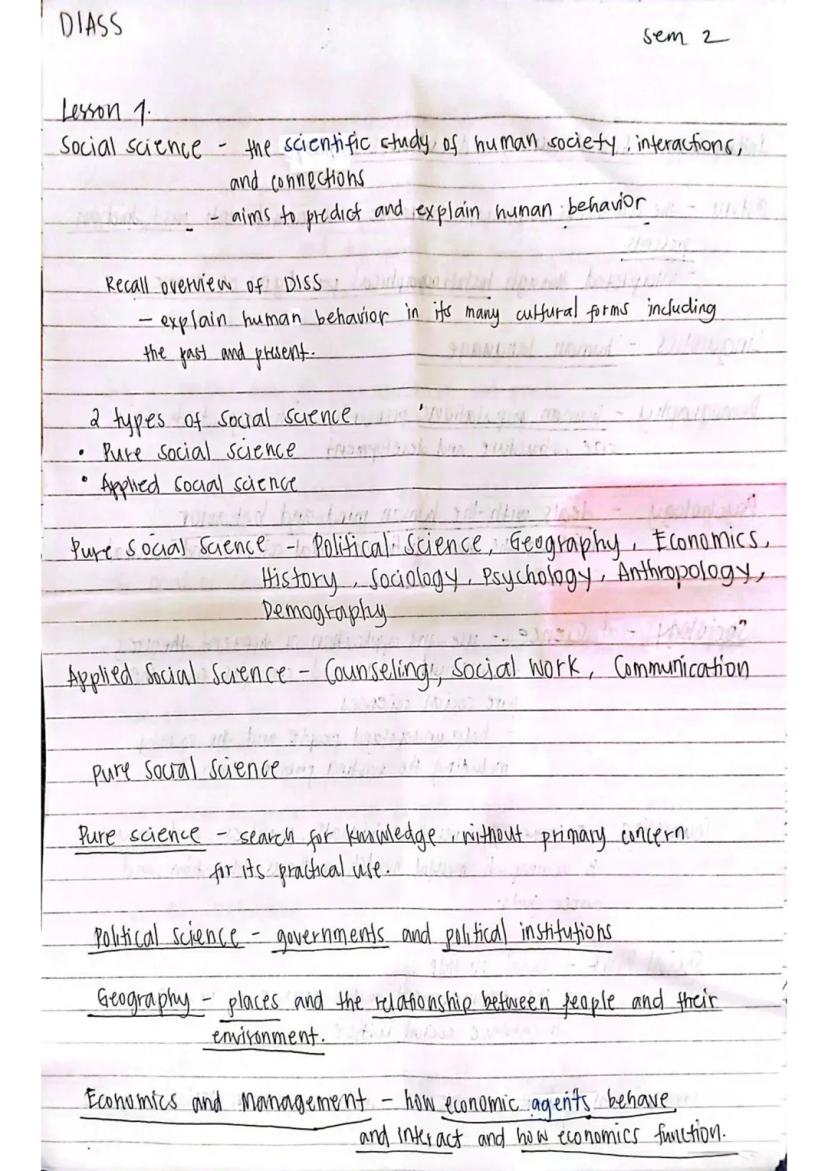 DIASS
sem 2
Lesson 1.
Social science - the scientific study of human society, interactions,
and connections
- aims to predict and explain human behavior
Recall overview of DISS
- explain human behavior in its many cultural forms including
the past and present.
2 types of social science
• Pure social science
• Applied social science
Pure social science - Political Science, Geography, Economics,
History, Sociology, Psychology, Anthropology,
Demography
Applied Social Science - Counseling, Social Work, Communication
Pure Social Science
Pure science - search for knowledge, without primary concern
for its practical use.
Political Science - governments and political institutions
Geography - places and the relationship between people and their
environment.
Economics and Management - how economic agents behave
and interact and how economics function.